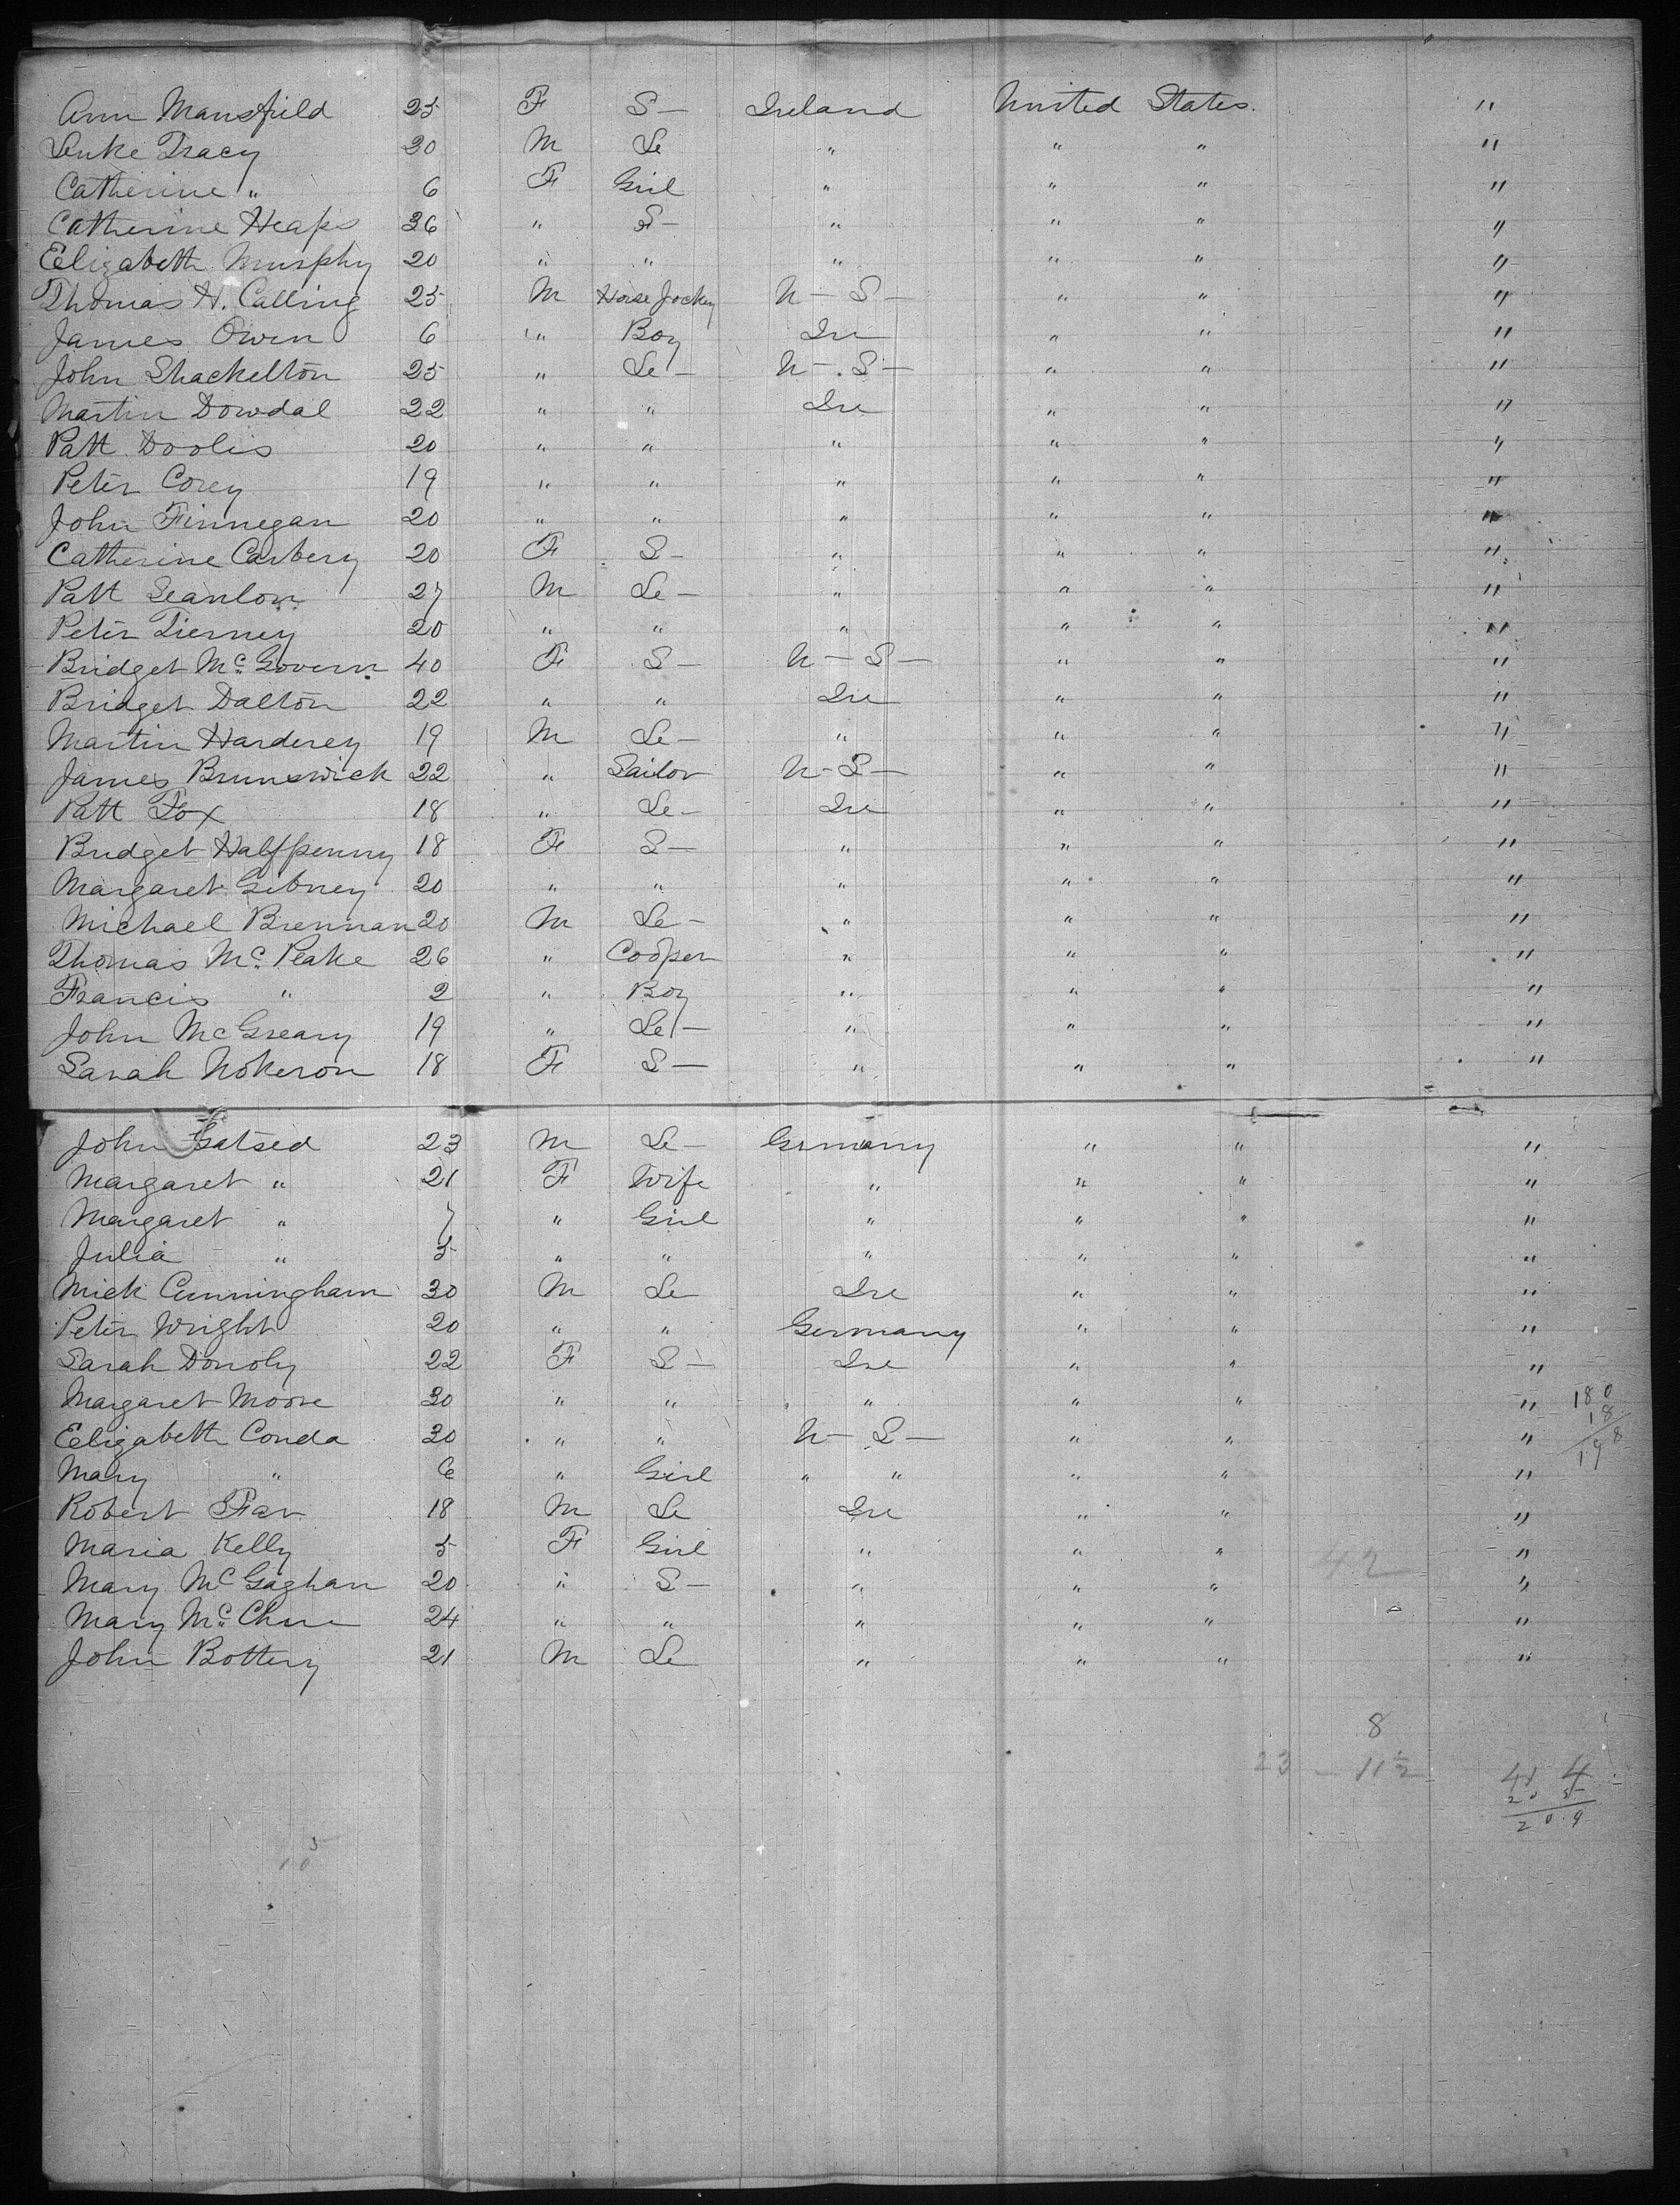 Ann Mansfield 25 F S— Ireland United States. "
Luke Tracy 30 M Le " " " "
Catherine " 6 F Girl " " " "
Catherine Heaps 36 " S— " " " "
Elizabeth Murphy 20 " " " " " "
Thomas H. Calling 25 M Horse Jockey U— S— " " "
James Owen 6 " Boy Ire " " "
John Shackelton 25 " Le— U—. S— " " "
Martin Dowdal 22 " " Ire " " "
Patt Doolis 20 " " " " " "
Peter Corey 19 " " " " " "
John Finnegan 20 " " " " " "
Catherine Carbery 20 F S— " " " "
Patt Scanlon 27 M Le— " " " "
Peter Tierney 20 " " " " " "
Bridget Mc Govern 40 F S— U— S— " " "
Bridget Dalton 22 " " Ire " " "
Martin Harderey 19 M Le— " " " "
James Brunswick 22 " Sailor U— S— " " "
Patt Fox 18 " Le— Ire " " "
Bridget Halfpenny 18 F S— " " " "
Margaret Gibney 20 " " " " " "
Michael Brennan 20 M Le— " " " "
Thomas Mc Peake 26 " Cooper " " " "
Francis " 2 " Boy " " " "
John McGreary 19 " Le— " " " "
Sarah Nokeron 18 F S— " " " "
John Gatsed 23 M Le— Germany " " "
Margaret " 21 F Wife " " " "
Margaret " 7 " Girl " " " "
Julia " 5 " " " " " "
Mick Cunningham 30 M Le Ire " " "
Peter Wright 20 " " Germany " " "
Sarah Donoly 22 F S— Ire " " "
Margaret Moore 30 " " " " " " 180
18
Elizabeth Conda 30 " " U— S— " " " 198
Mary " 6 " Girl " " " " "
Robert Far 18 M Le Ire " " "
Maria Kelly 5 F Girl " " " 42 "
Mary Mc Gaghan 20 " S— " " " "
Mary Mc Chue 24 " " " " " "
John Bottery 21 M Le " " " "
8
23 — 11 1/2 4
20 5
20.9